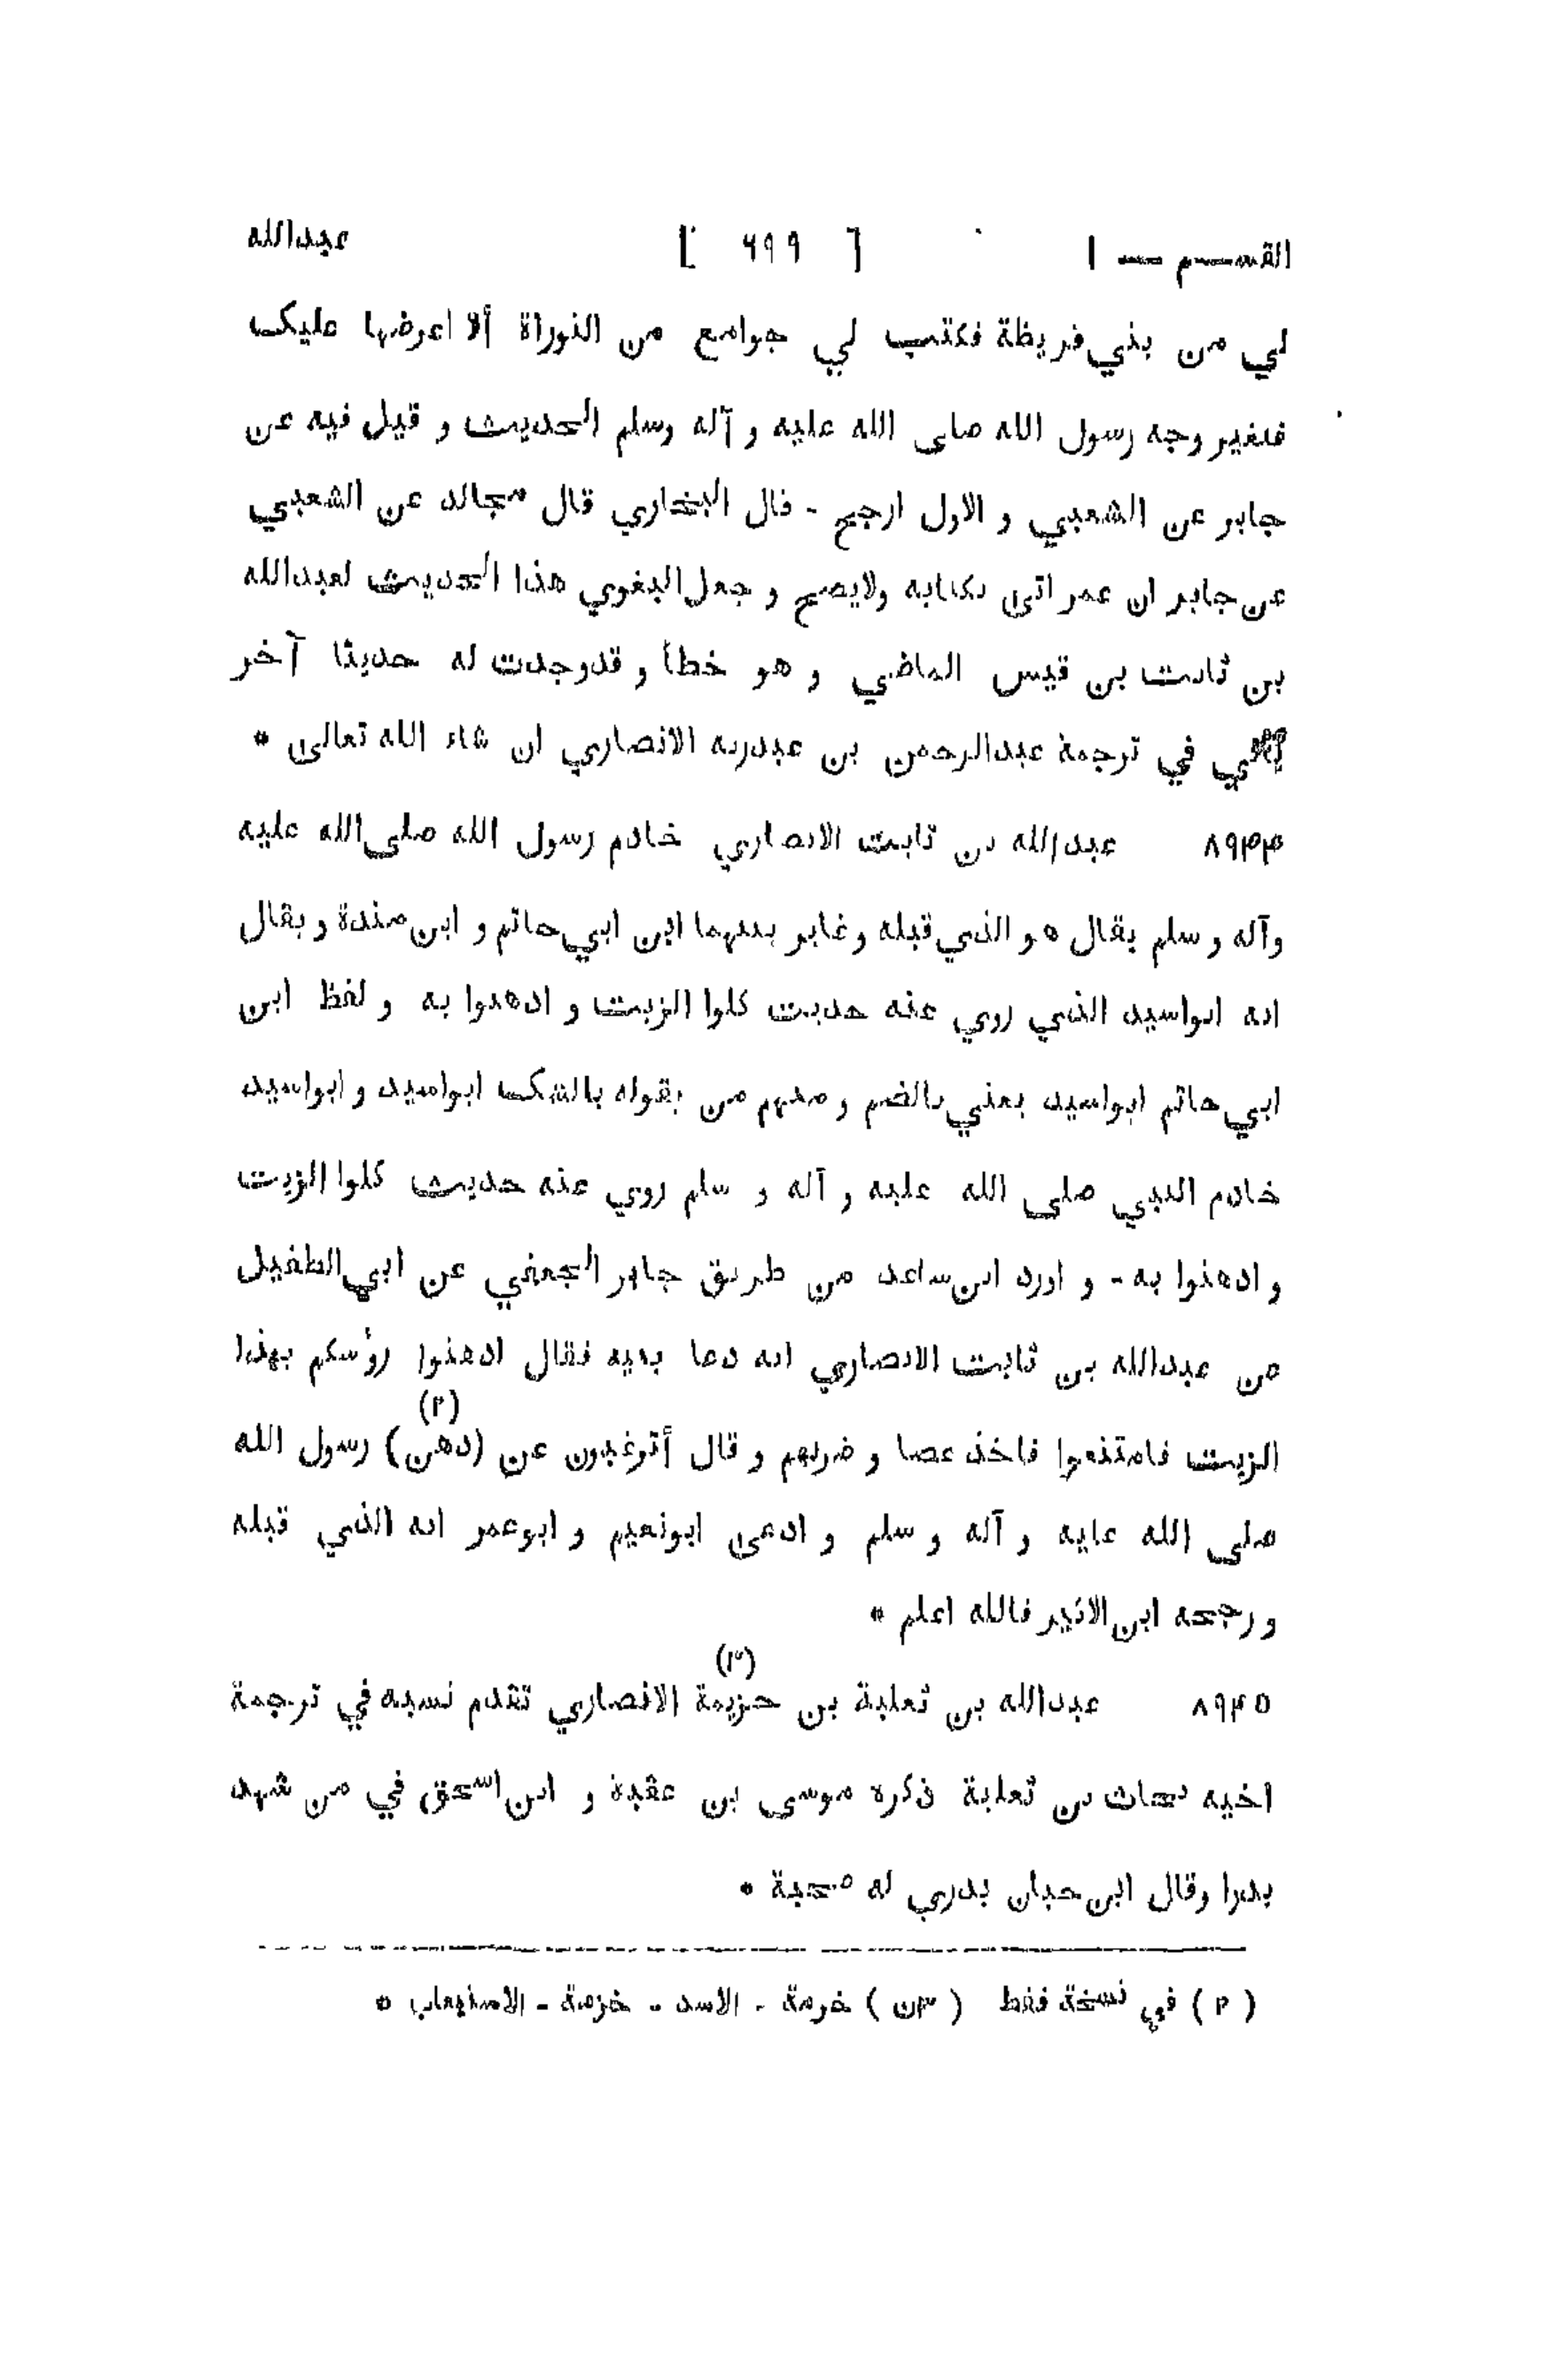 القسم — ١ [ ٦٩٩ ] عبدالله
لي من بني قريظة فكتب لي جوامع من التوراة ألا اعرضها عليك
فتغير وجه رسول الله صلى الله عليه و آله وسلم الحديث و قيل فيه عن
جابر عن الشعبي و الاول ارجح - قال البخاري قال مجالد عن الشعبي
عن جابر ان عمر اتى بكتابه ولايصح و جعل البغوي هذا الحديث لعبدالله
بن ثابت بن قيس الماضي و هو خطأ و قدوجدت له حديثا آخر
في ترجمة عبدالرحمن بن عبدربه الانصاري ان شاء الله تعالى *
٨٩٤٤ عبدالله بن ثابت الانصاري خادم رسول الله صلى الله عليه
وآله و سلم يقال هو الذي قبله وغاير بينهما ابن ابي حاتم و ابن مندة و يقال
انه ابواسيد الذي روي عنه حديث كلوا الزيت و ادهنوا به و لفظ ابن
ابي حاتم ابواسيد يعني بالضم و منهم من يقوله بالشك ابواسيد و ابواسيد
خادم النبي صلى الله عليه و آله و سلم روي عنه حديث كلوا الزيت
و ادهنوا به - و اورد ابن ساعد من طريق جابر الجعفي عن ابي الطفيل
عن عبدالله بن ثابت الانصاري انه دعا بنيه فقال ادهنوا رؤسكم بهذا
الزيت فامتنعوا فاخذ عصا و ضربهم و قال أترغبون عن (دهن) (٢) رسول الله
صلى الله عليه و آله و سلم و ادعى ابونعيم و ابوعمر انه الذي قبله
و رجحه ابن الاثير فالله اعلم *
٨٩٤٥ عبدالله بن ثعلبة بن خزيمة (٣) الانصاري تقدم نسبه في ترجمة
اخيه بحاث بن ثعلبة ذكره موسى بن عقبة و ابن اسحق في من شهد
بدرا وقال ابن حبان بدري له صحبة *
( ٢ ) في نسخة فقط ( ٣ن ) خرمة - الاسد - خزمة - الاستيعاب *